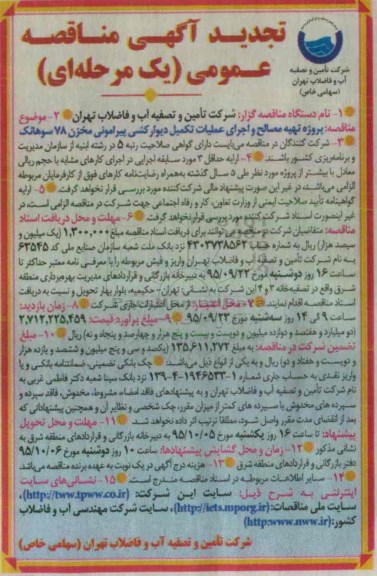 تجدید آگهی مناقصه
عمومی (یک مرحله‌ای)
شرکت تأمین و تصفیه
آب و فاضلاب تهران
(سهامی خاص)
۱- نام دستگاه مناقصه گزار: شرکت تأمین و تصفیه آب و فاضلاب تهران ۲- موضوع
مناقصه: پروژه تهیه مصالح و اجرای عملیات تکمیل دیوارکشی پیرامونی مخزن ۷۸ سوهانک
۳- شرکت کنندگان در مناقصه می‌بایست دارای گواهی صلاحیت رتبه ۵ در رشته ابنیه از سازمان مدیریت
و برنامه‌ریزی کشور باشند ۴- ارایه حداقل ۳ مورد سابقه اجرایی در اجرای کارهای مشابه با حجم ریالی
معادل یا بیشتر از پروژه مورد نظر طی ۵ سال گذشته به‌همراه رضایت‌نامه کارهای فوق از کارفرمایان مربوطه
الزامی می‌باشد، در غیر این صورت پیشنهاد مالی شرکت‌کننده مورد بررسی قرار نخواهد گرفت. ۵- ارایه
گواهینامه تأیید صلاحیت ایمنی از وزارت تعاون، کار و رفاه اجتماعی جهت شرکت در مناقصه الزامی است، در
غیر اینصورت اسناد شرکت‌کننده مورد بررسی قرار نخواهد گرفت. ۶- مهلت و محل دریافت اسناد
مناقصه: متقاضیان شرکت در مناقصه می‌توانند برای دریافت اسناد مناقصه مبلغ ۱,۳۰۰,۰۰۰ (یک میلیون و
سیصد هزار) ریال به شماره حساب ۴۲۰۳۷۳۸۵۶۲ نزد بانک ملت شعبه سازمان صنایع ملی کد ۶۳۵۴۵
به نام شرکت تأمین و تصفیه آب و فاضلاب تهران واریز و فیش مربوطه را با معرفی نامه معتبر حداکثر تا
ساعت ۱۶ روز دوشنبه مورخ ۹۵/۰۹/۲۲ به دبیرخانه بازرگانی و قراردادهای مدیریت بهره‌برداری منطقه
شرق واقع در تصفیه‌خانه ۳ و ۴ این شرکت به نشانی: تهران- حکیمیه، بلوار بهار تحویل و نسبت به دریافت
اسناد مناقصه اقدام نمایند. ۷- محل اعتبار: از محل اعتبارات جاری شرکت ۸- زمان بازدید:
ساعت ۹ الی ۱۴ روز سه‌شنبه مورخ ۹۵/۰۹/۲۳ ۹- مبلغ برآورد قیمت: ۲,۷۱۲,۲۲۵,۴۵۹
(دو میلیارد و هفتصد و دوازده میلیون و دویست و بیست و پنج هزار و چهارصد و پنجاه و نه) ریال ۱۰- مبلغ
تضمین شرکت در مناقصه: به مبلغ ۱۳۵,۶۱۱,۲۷۲ (یکصد و سی و پنج میلیون و ششصد و یازده هزار
و دویست و هفتاد و دو) ریال و به یکی از انواع ذیل می‌باشد: چک بانکی تضمینی، ضمانتنامه بانکی و یا
واریز نقدی به حساب جاری شماره ۱-۱۹۴۶۵۳۳-۴-۱۳۹ نزد بانک سینا شعبه دکتر فاطمی غربی به
نام شرکت تأمین و تصفیه آب و فاضلاب تهران و به پیشنهادهای فاقد امضاء، مشروط، مخدوش، فاقد سپرده و
سپرده های مخدوش یا سپرده های کمتر از میزان مقرر، چک شخصی و نظایر آن و همچنین پیشنهاداتی که
بعد از انقضای مدت مقرر واصل شود، مطلقا ترتیب اثر داده نخواهد شد. ۱۱- مهلت و محل تحویل
پیشنهاد: تا ساعت ۱۶ روز یکشنبه مورخ ۹۵/۱۰/۰۵ به دبیرخانه بازرگانی و قراردادهای منطقه شرق به
نشانی مذکور ۱۲- زمان و محل گشایش پیشنهادها: ساعت ۱۰ روز دوشنبه مورخ ۹۵/۱۰/۰۶
دفتر بازرگانی و قراردادهای منطقه شرق ۱۳- هزینه درج آگهی در یک نوبت به عهده برنده مناقصه می‌باشد
۱۴- سایر اطلاعات مربوطه در اسناد مناقصه مندرج است. ۱۵- نشانی‌های سایت
اینترنتی به شرح ذیل: سایت این شرکت: (http://tww.tpww.co.ir)،
سایت ملی مناقصات: (http://iets.mporg.ir)، سایت شرکت مهندسی آب و فاضلاب
کشور: (http:www.nww.ir)
شرکت تأمین و تصفیه آب و فاضلاب تهران (سهامی خاص)